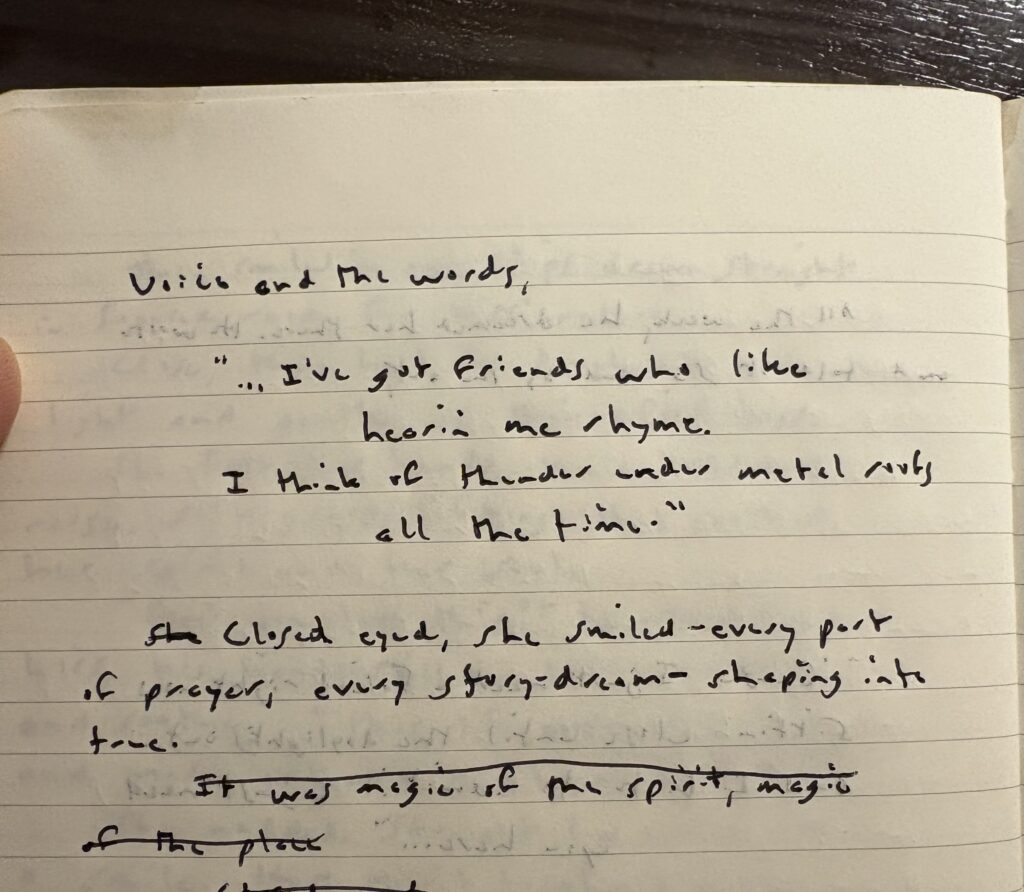 Voice and the words,
"... I've got friends who like
hearin me rhyme.
I think of thunder under metal roofs
all the time."
She Closed eyed, she smiled - every part
of prayer, every story-dream - shaping into
true.
It was magic of the spirit, magic
of the place